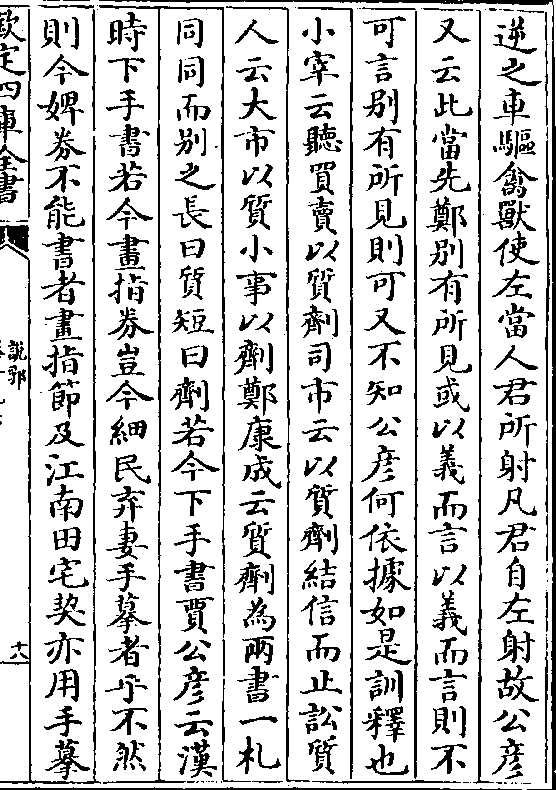 逆之車驅禽獸使左當人君所射凡君自左射故公彦
又云此當先鄭別有所見或以義而言以義而言則不
可言別有所見則可又不知公彦何依據如是訓釋也
小宰云聽買賣以質劑司市云以質劑結信而止訟質
人云大市以質小事以劑鄭康成云質劑為兩書一札
同同而别之長曰質短曰劑若今下手書賈公彦云漢
時下手書若今畫指券豈今細民弃妻手摹者乎不然
則今婢券不能書者畫指節及江南田宅契亦用手摹
欽定四庫全書
說郛
十八